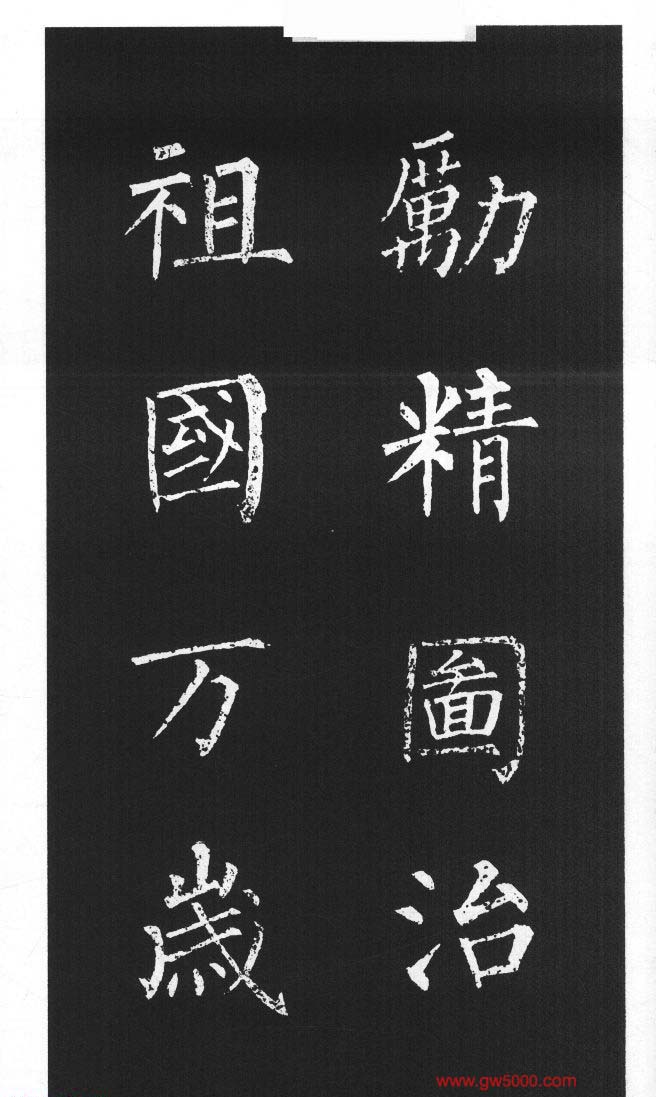 勵精圖治
祖國万歲
www.gw5000.com